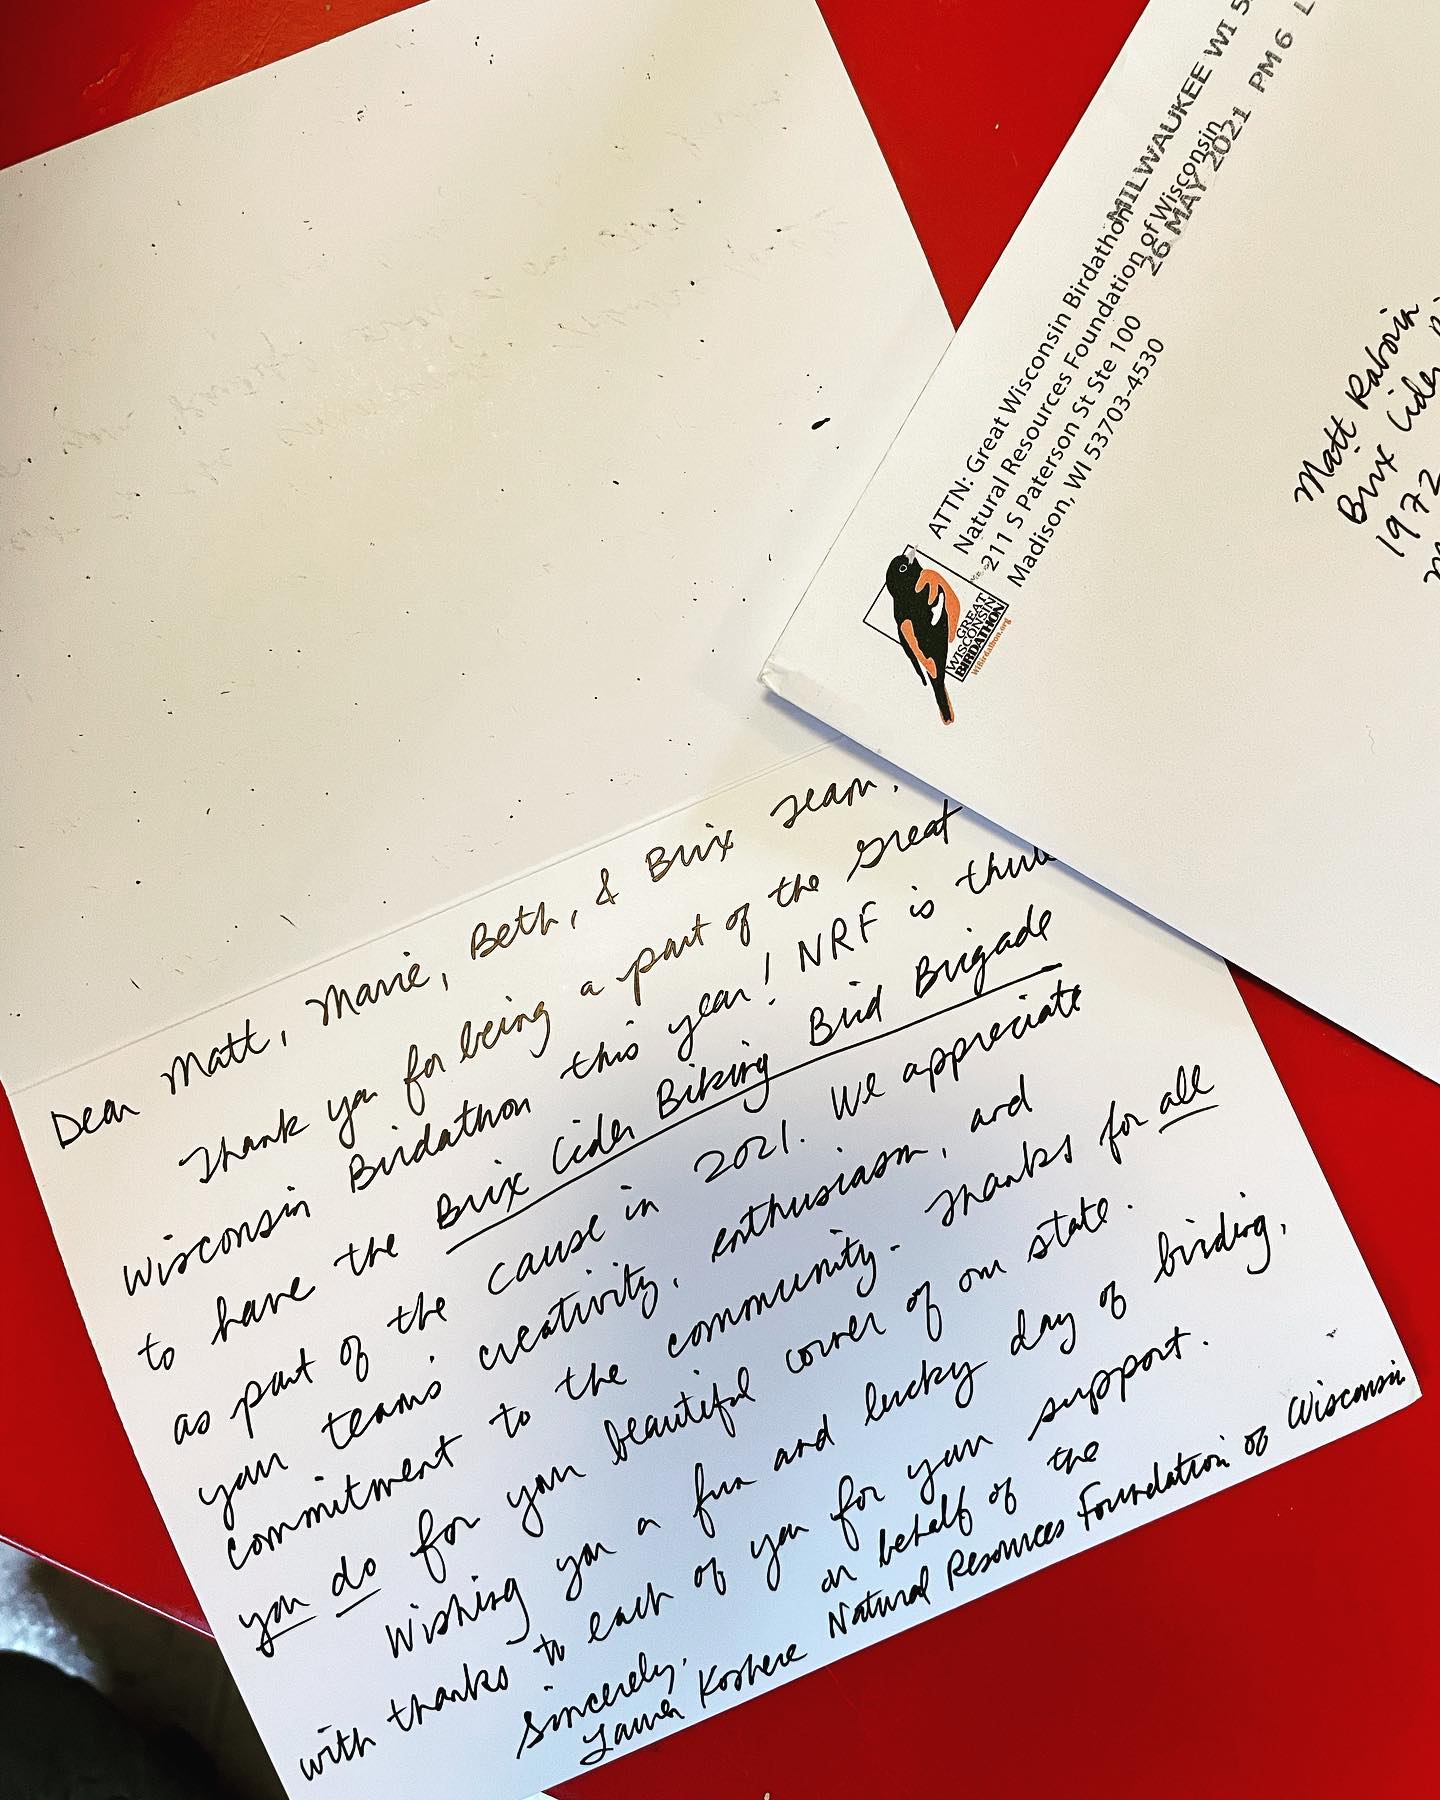 MILWAUKEE WI 5
26 MAY 2021 PM 6 L
ATTN: Great Wisconsin Birdathon
Natural Resources Foundation of Wisconsin
211 S Paterson St Ste 100
Madison, WI 53703-4530
GREAT
WISCONSIN
BIRDATHON
WIBirdathon.org
Matt Raboin
Brix Cider
1972
Dear Matt, Marie, Beth, & Brix Team,
Thank you for being a part of the Great
Wisconsin Birdathon this year! NRF is
to have the Brix Cider Biking Bird Brigade
as part of the cause in 2021. We appreciate
your teams' creativity, enthusiasm, and
commitment to the community. Thanks for all
you do for your beautiful corner of our state.
Wishing you a fun and lucky day of birding,
with thanks to each of you for your support.
Sincerely, on behalf of the
Koshere Natural Resources Foundation of Wisconsin